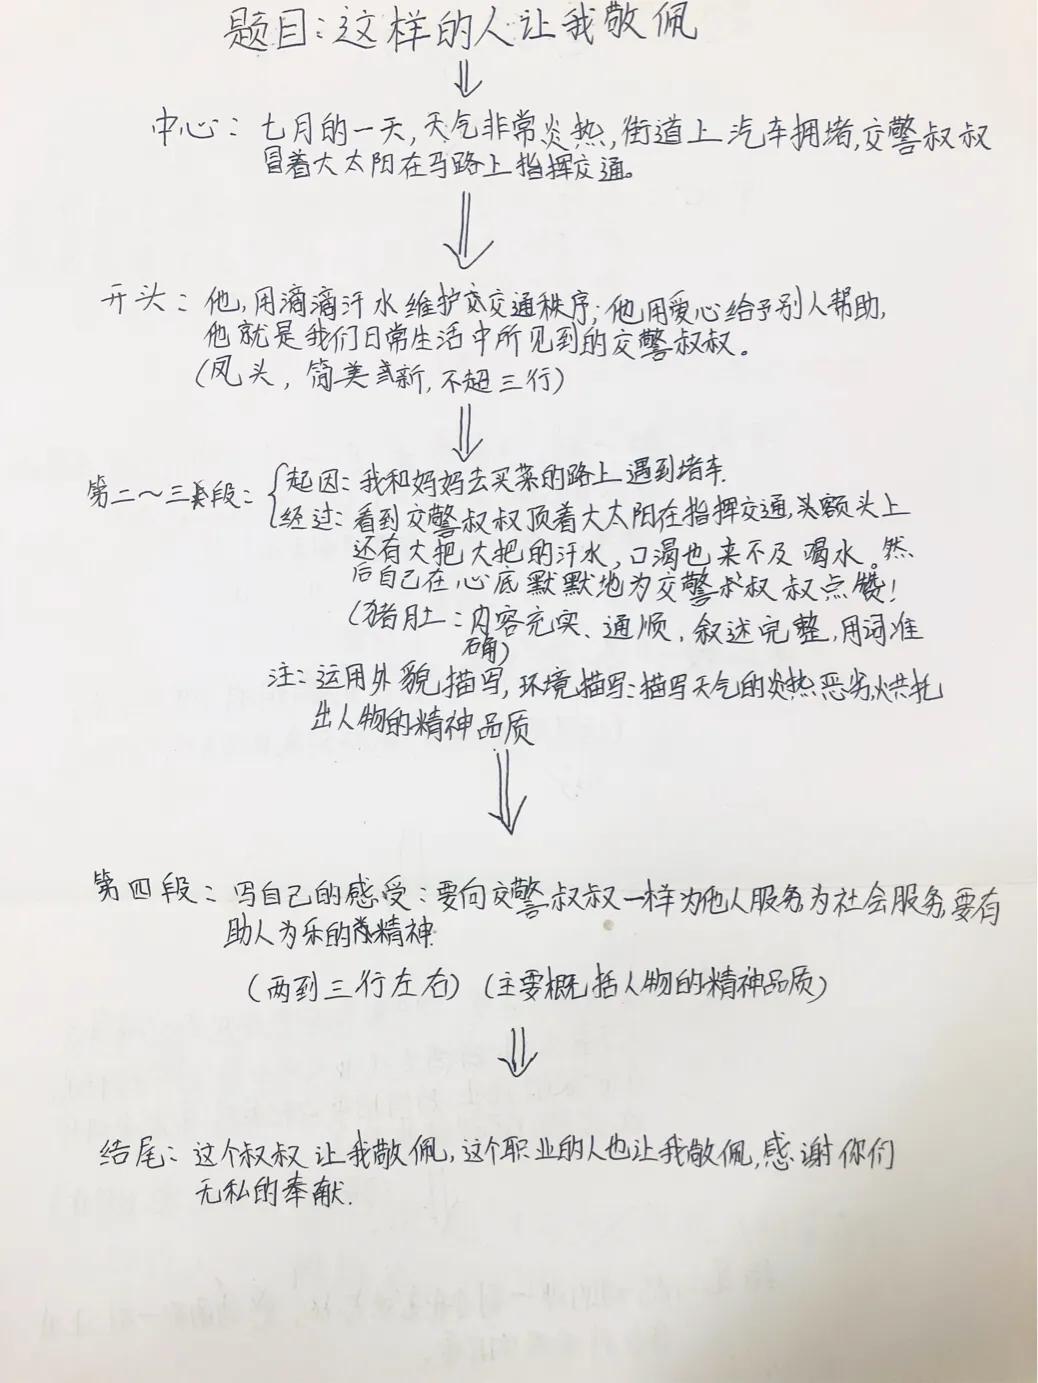 题目:这样的人让我敬佩
中心:七月的一天,天气非常炎热,街道上汽车拥堵,交警叔叔
冒着大太阳在马路上指挥交通。
开头:他,用滴滴汗水维护交通秩序;他用爱心给予别人帮助,
他就是我们日常生活中所见到的交警叔叔。
(凤头,简美或新,不超三行)
第二~三段:
起因:我和妈妈去买菜的路上遇到堵车.
经过:看到交警叔叔顶着大太阳在指挥交通,额头上
还有大把大把的汗水,口渴也来不及喝水。然
后自己在心底默默地为交警叔叔点赞!
(猪肚:内容充实、通顺,叙述完整,用词准
确)
注:运用外貌描写,环境描写:描写天气的炎热恶劣,烘托
出人物的精神品质
第四段:写自己的感受:要向交警叔叔一样为他人服务,为社会服务,要有
助人为乐的精神.
(两到三行左右)(主要概括人物的精神品质)
结尾:这个叔叔让我敬佩,这个职业的人也让我敬佩,感谢你们
无私的奉献.